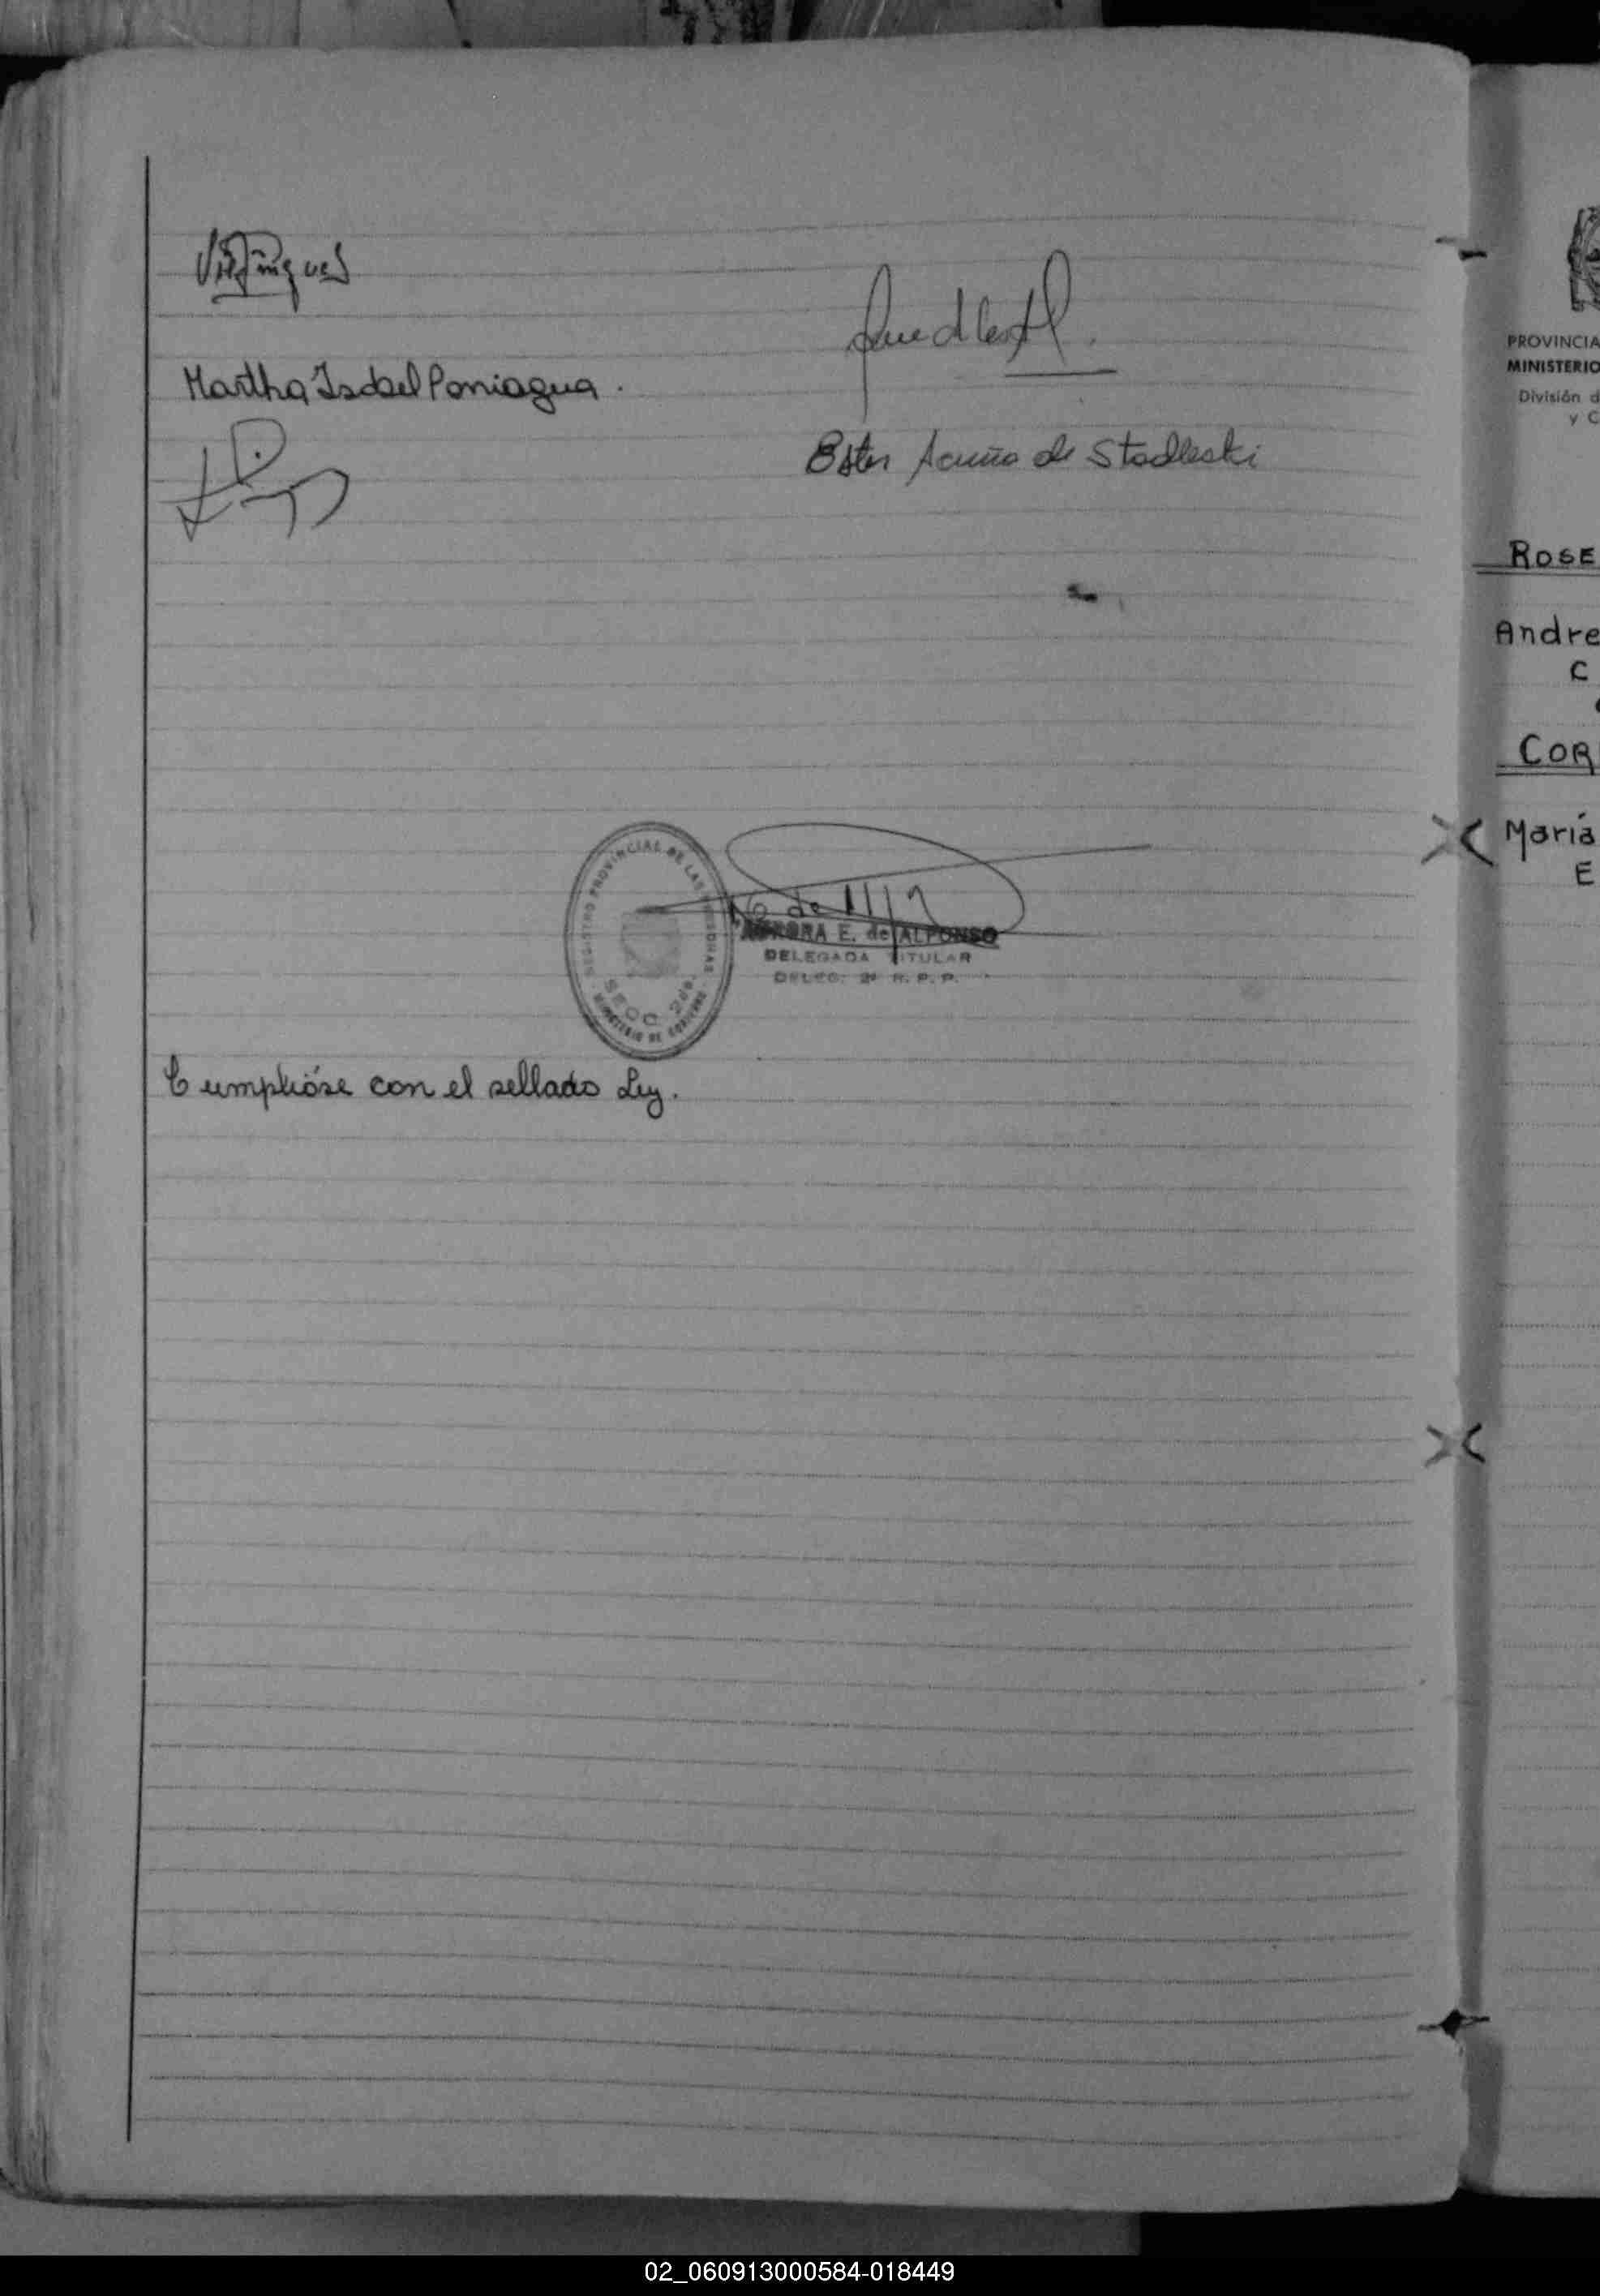 Martha Isabel Paniagua.
Ester Acuña de Stadleski
REGISTRO PROVINCIAL DE LAS PERSONAS
SECC. 2da.
MINISTERIO DE GOBIERNO
AURORA E. de ALFONSO
DELEGADA TITULAR
DELEG. 2ª R. P. P.
Cumplióse con el sellado Ley.
PROVINCIA
MINISTERIO
División d
y C
ROSE
Andre
C
COR
María
E
02_060913000584-018449